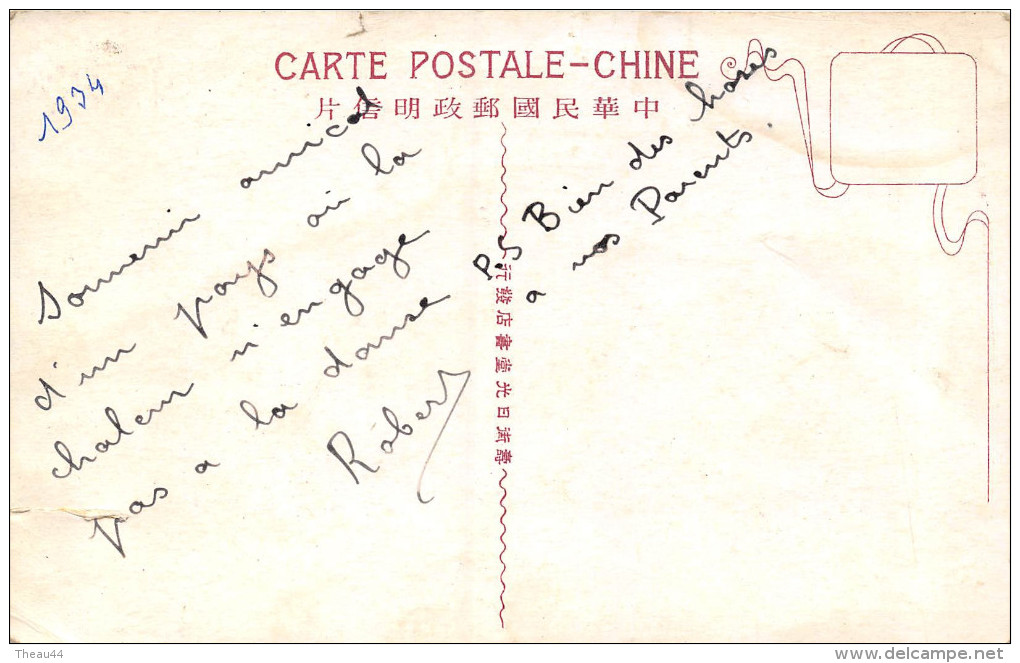 CARTE POSTALE-CHINE
片信明政郵國民華中
1934
Souvenir amical
d'un pays où la
chaleur n'engage
pas a la danse
Robert
P.S Bien des choses
a vos Parents.
行發店書堂光日街壽
Theau44
www.delcampe.net